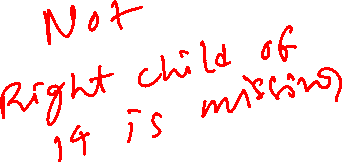 Not
Right child of
14 is missing